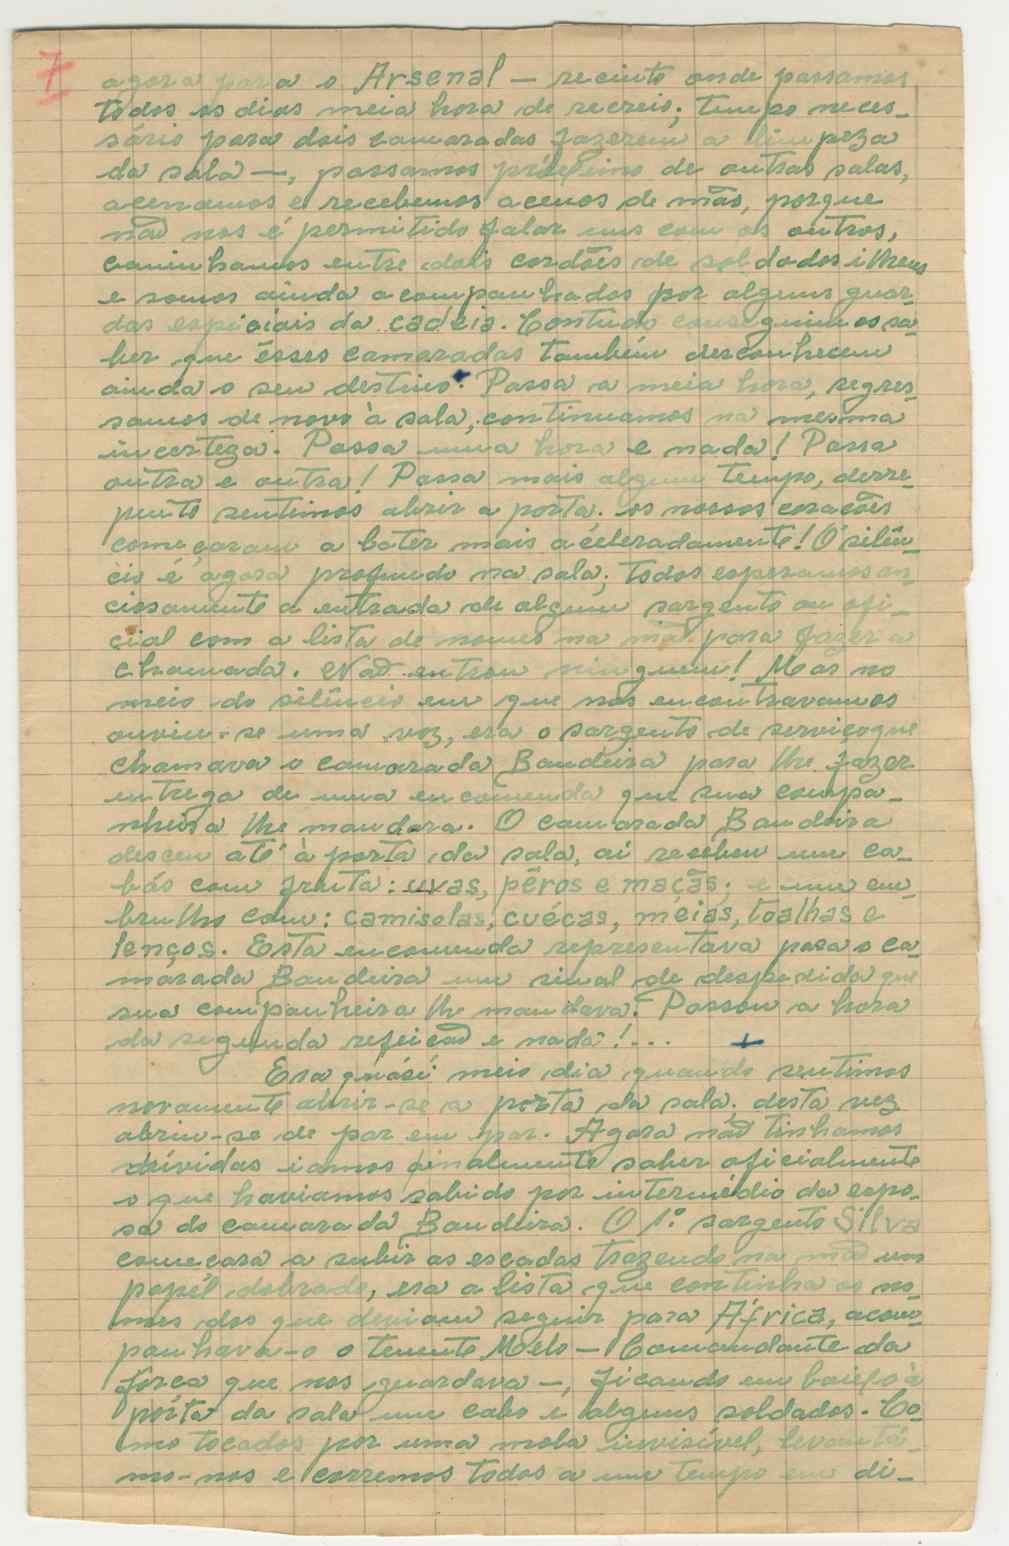 7
agora para o Arsenal — recinto onde passamos
todos os dias meia hora de recreio; tempo neces-
sário para dois camaradas fazerem a limpeza
da sala —, passamos próximo de outras salas,
acenamos e recebemos acenos de mão, porque
não nos é permitido falar uns com os outros,
caminhamos entre dois cordões de soldados ilheus
e somos ainda acompanhados por alguns guar-
das espiciais da cadeia. Contudo conseguimos sa-
ber que êsses camaradas também desconhecem
ainda o seu destino. Passa a meia hora, regres-
samos de novo à sala, continuamos na mesma
incerteza. Passa uma hora e nada! Passa
outra e outra! Passa mais algum tempo, derre-
pente sentimos abrir a porta. os nossos corações
começaram a bater mais acéleradamente! O silên-
cio é agora profundo na sala; todos esperamos an-
ciosamente a entrada de algum sargento ou ofi-
cial com a lista de nomes na mão para fazer a
chamada. Não entrou ninguem! Mas no
meio do silêncio em que nos encontravamos
ouviu-se uma voz, era o sargento de serviço que
chamava o camarada Bandeira para lhe fazer
entrega de uma encomenda que sua compa-
nheira lhe mandara. O camarada Bandeira
desceu até à porta da sala, aí recebeu um ca-
bás com fruta: uvas, pêros e maçãs; e um em-
brulho com: camisolas, cuécas, méias, toalhas e
lenços. Esta encomenda representava para o ca-
marada Bandeira um sinal de despedida que
sua companheira lhe mandava. Passou a hora
da segunda refeição e nada!...
Era quási meio dia quando sentimos
novamente abrir-se a porta da sala; desta vez
abriu-se de par em par. Agora não tinhamos
dúvidas iamos finalmente saber oficialmente
o que haviamos sabido por intermédio da espo-
sa do camarada Bandeira. O 1º sargento Silva
começara a subir as escadas trazendo na mão um
papél dobrado, era a lista que continha os no-
mes dos que deviam seguir para África, acom-
panhava-o o tenente Melo — Comandante da
força que nos guardava —, ficando em baixo à
porta da sala um cabo e alguns soldados. Co-
mo tocados por uma mola invisível, levantá-
mo-nos e corremos todos a um tempo em di-